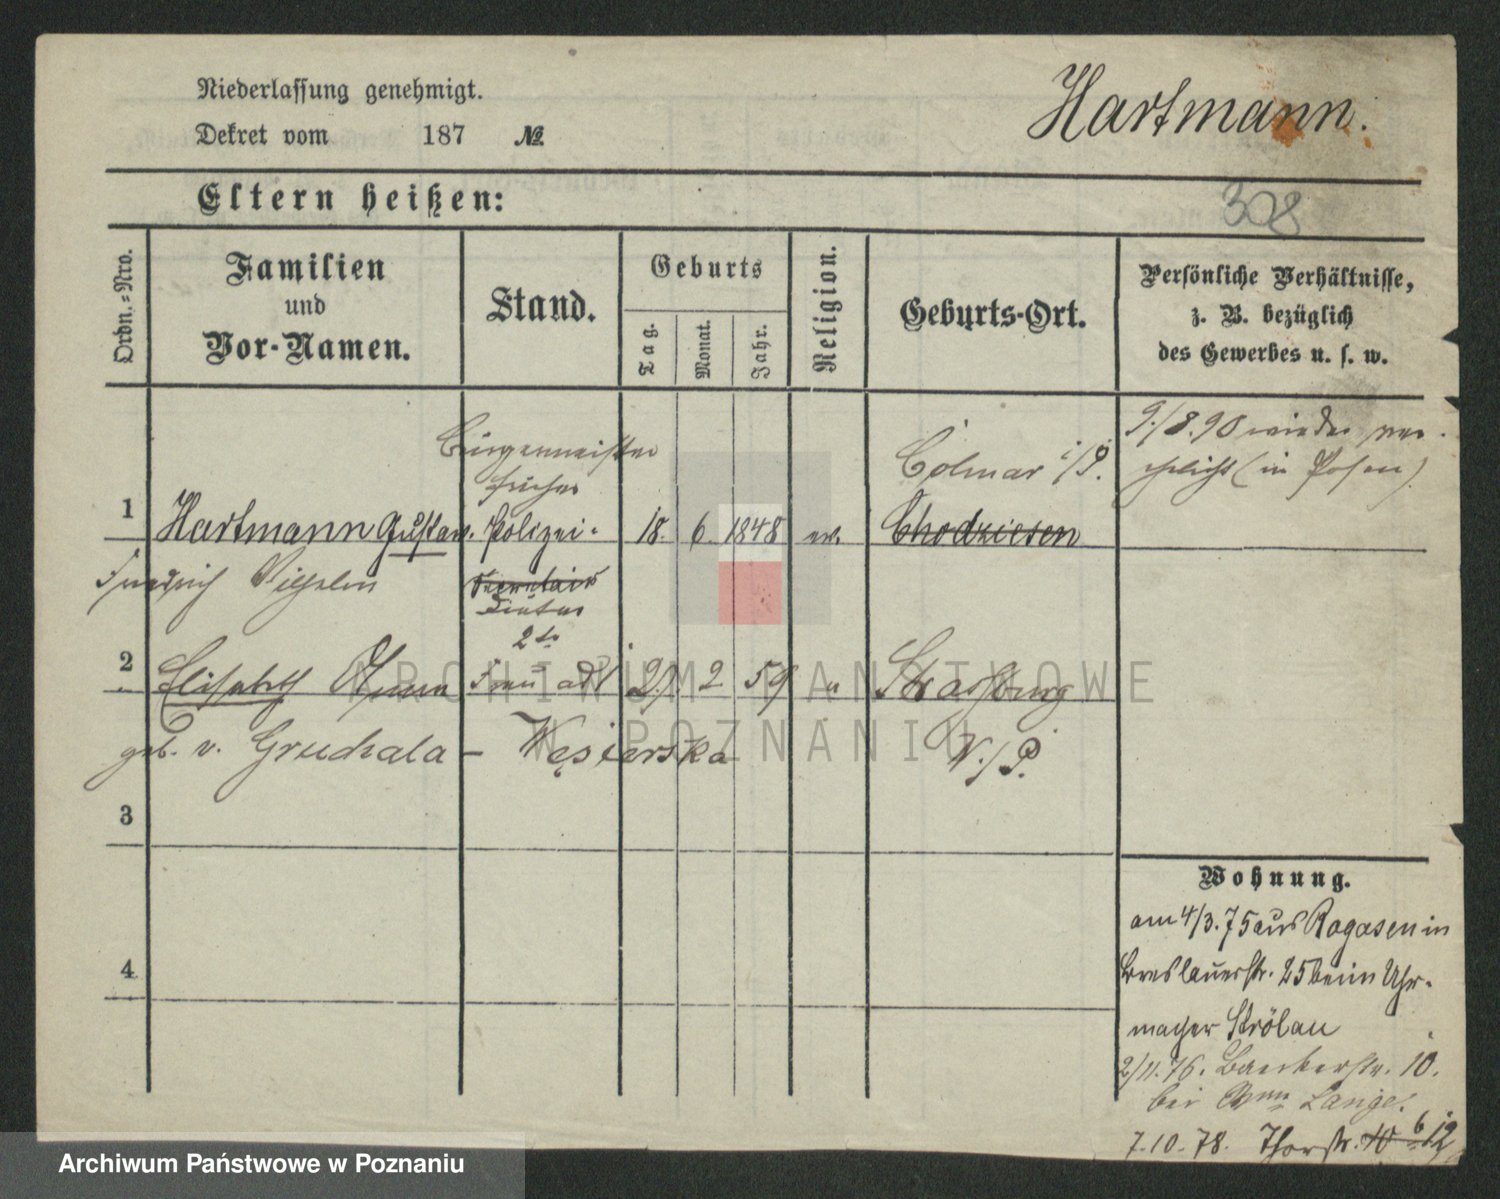 Niederlassung genehmigt.
Hartmann.
Dekret vom 187 №
Eltern heißen:
308
Ordn.=Nro.
Familien
und
Vor-Namen.
Stand.
Geburts
Tag.
Monat.
Jahr.
Religion.
Geburts-Ort.
Persönliche Verhältnisse,
z. B. bezüglich
des Gewerbes u. s. w.
9./8.90 wieder ver-
ehelicht (in Posen)
Bürgermeister
früher
Colmar i/P.
1 Hartmann Gustav. Polizei- 18. 6. 1848 ev. Chodziesen
Friedrich Wilhelm
Secretair
2te
2 Elisabeth Frau 2. 59 Strasburg
geb. v. Gruchala - Węsierska W./P.
3
4
Wohnung.
am 4/3.75 aus Rogasen in
Breslauerstr. 25 beim Uhr-
macher Strölau
2/11.76. Baeckerstr. 10.
bei Wwe Lange.
7.10.78. Thorstr. 10 b 12
ARCHIWUM PAŃSTWOWE
W POZNANIU
Archiwum Państwowe w Poznaniu